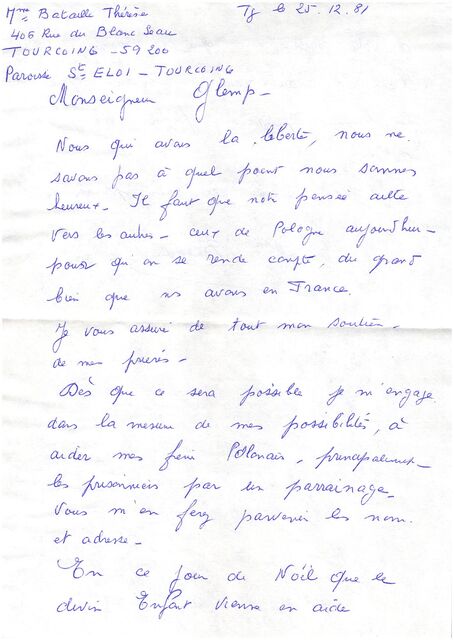 Mme Bataille Thérèse
Tg le 25.12.81
406 Rue du Blanc Seau
TOURCOING - 59200
Paroisse St ELOI - TOURCOING
Monseigneur Glemp -
Nous qui avons la liberté, nous ne
savons pas à quel point nous sommes
heureux - Il faut que notre pensée aille
vers les autres - ceux de Pologne aujourd'hui -
pour qu'on se rende compte, du grand
bien que ns avons en France.
Je vous assure de tout mon soutien -
de mes prières -
Dès que ce sera possible je m'engage
dans la mesure de mes possibilités, à
aider mes frères Polonais, principalement
les prisonniers par un parrainage -
Vous m'en ferez parvenir les nom
et adresse -
En ce jour de Noël que le
divin Enfant vienne en aide